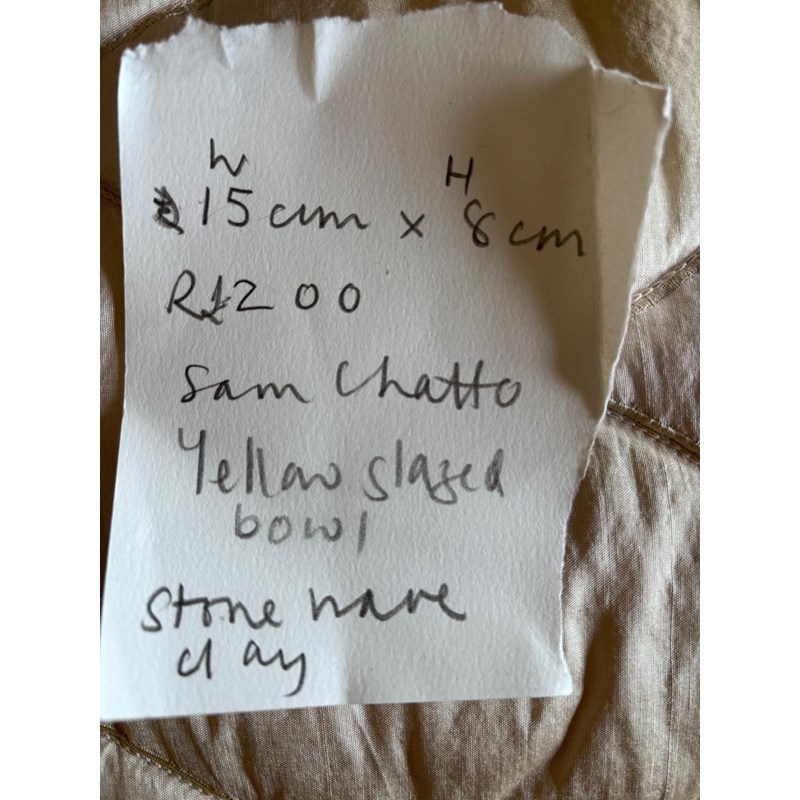 W H
15cm x 8cm
R1200
Sam Chatto
Yellow glazed
bowl
Stone ware
clay